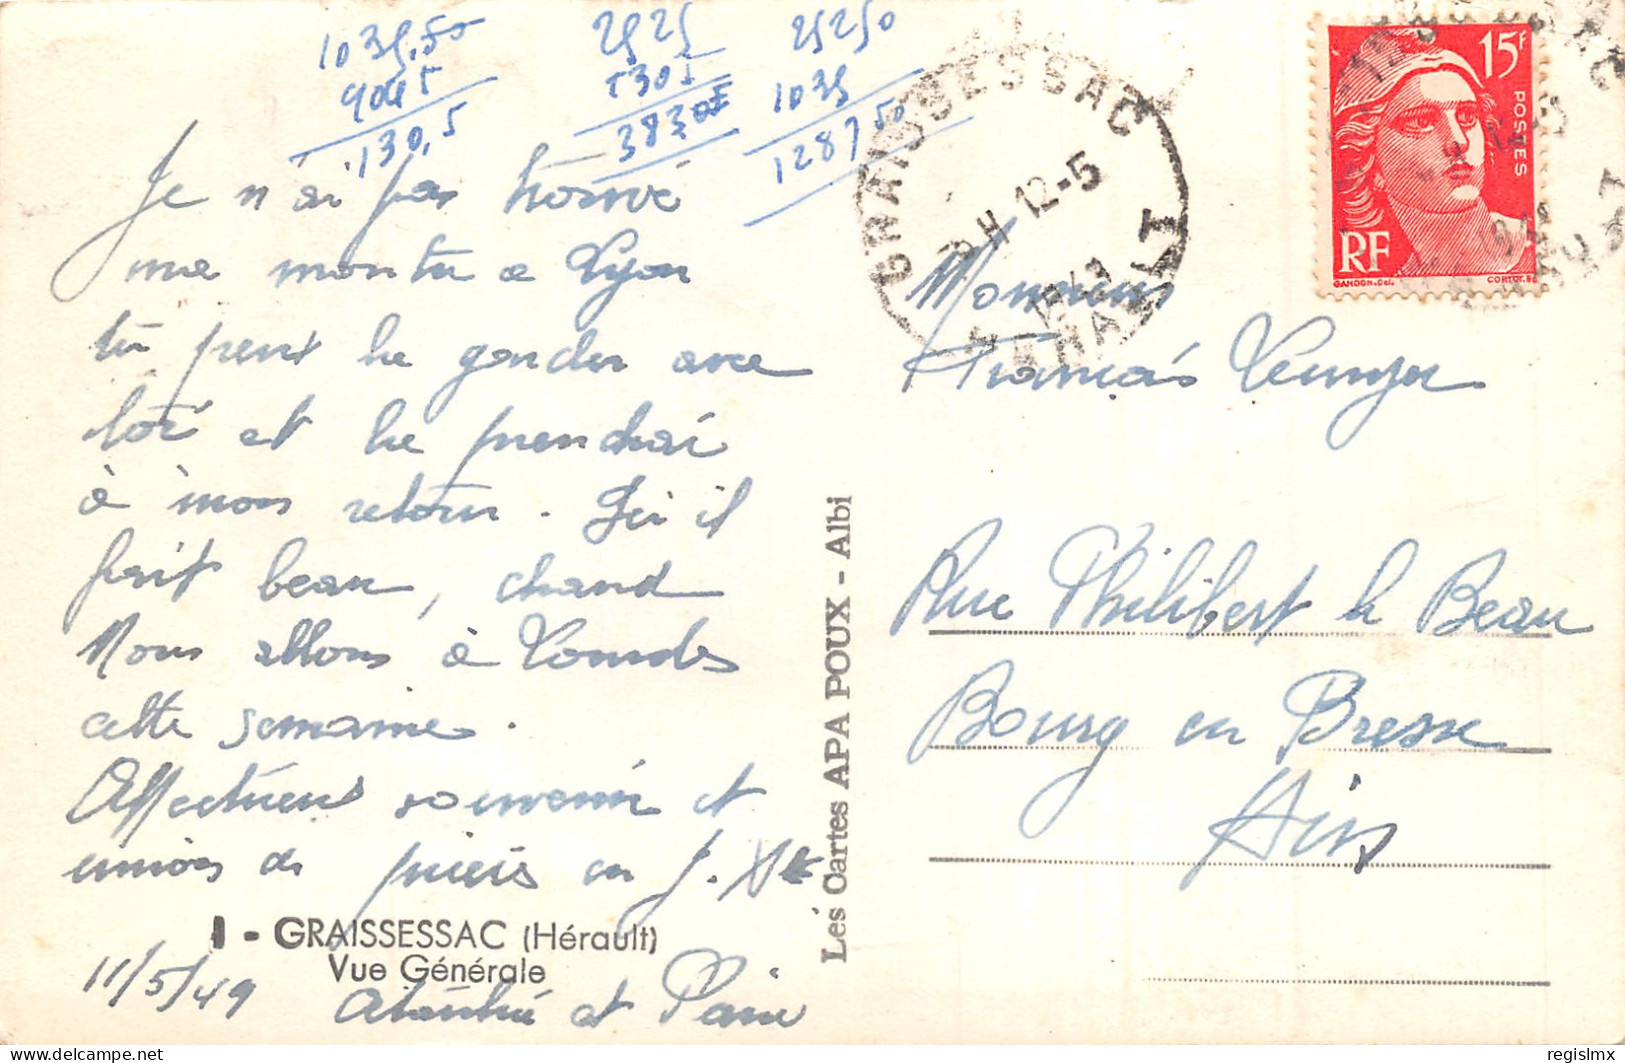 1039,50
9045
130,5
2525
1305
3830
25250
1039
1287 50
GRAISSESSAC
H 12-5
1949
HERAULT
15F
POSTES
RF
GANDON.Del.
CORTOT.SC
Je n'ai pas trouvé
ma montre à Lyon
tu peux la garder avec
toi et la prendrai
à mon retour. Ici il
fait beau, chaud
Nous allons à Lourdes
cette semaine.
Affectueux souvenir et
unions de prières en J.
1 - GRAISSESSAC (Hérault)
Vue Générale
11/5/49
et
Les Cartes APA POUX - Albi
Monsieur
François
Rue Philibert le Beau
Bourg en Bresse
Ain
delcampe.net
regislmx